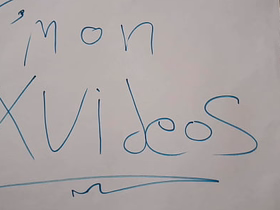 'mon
XVideos